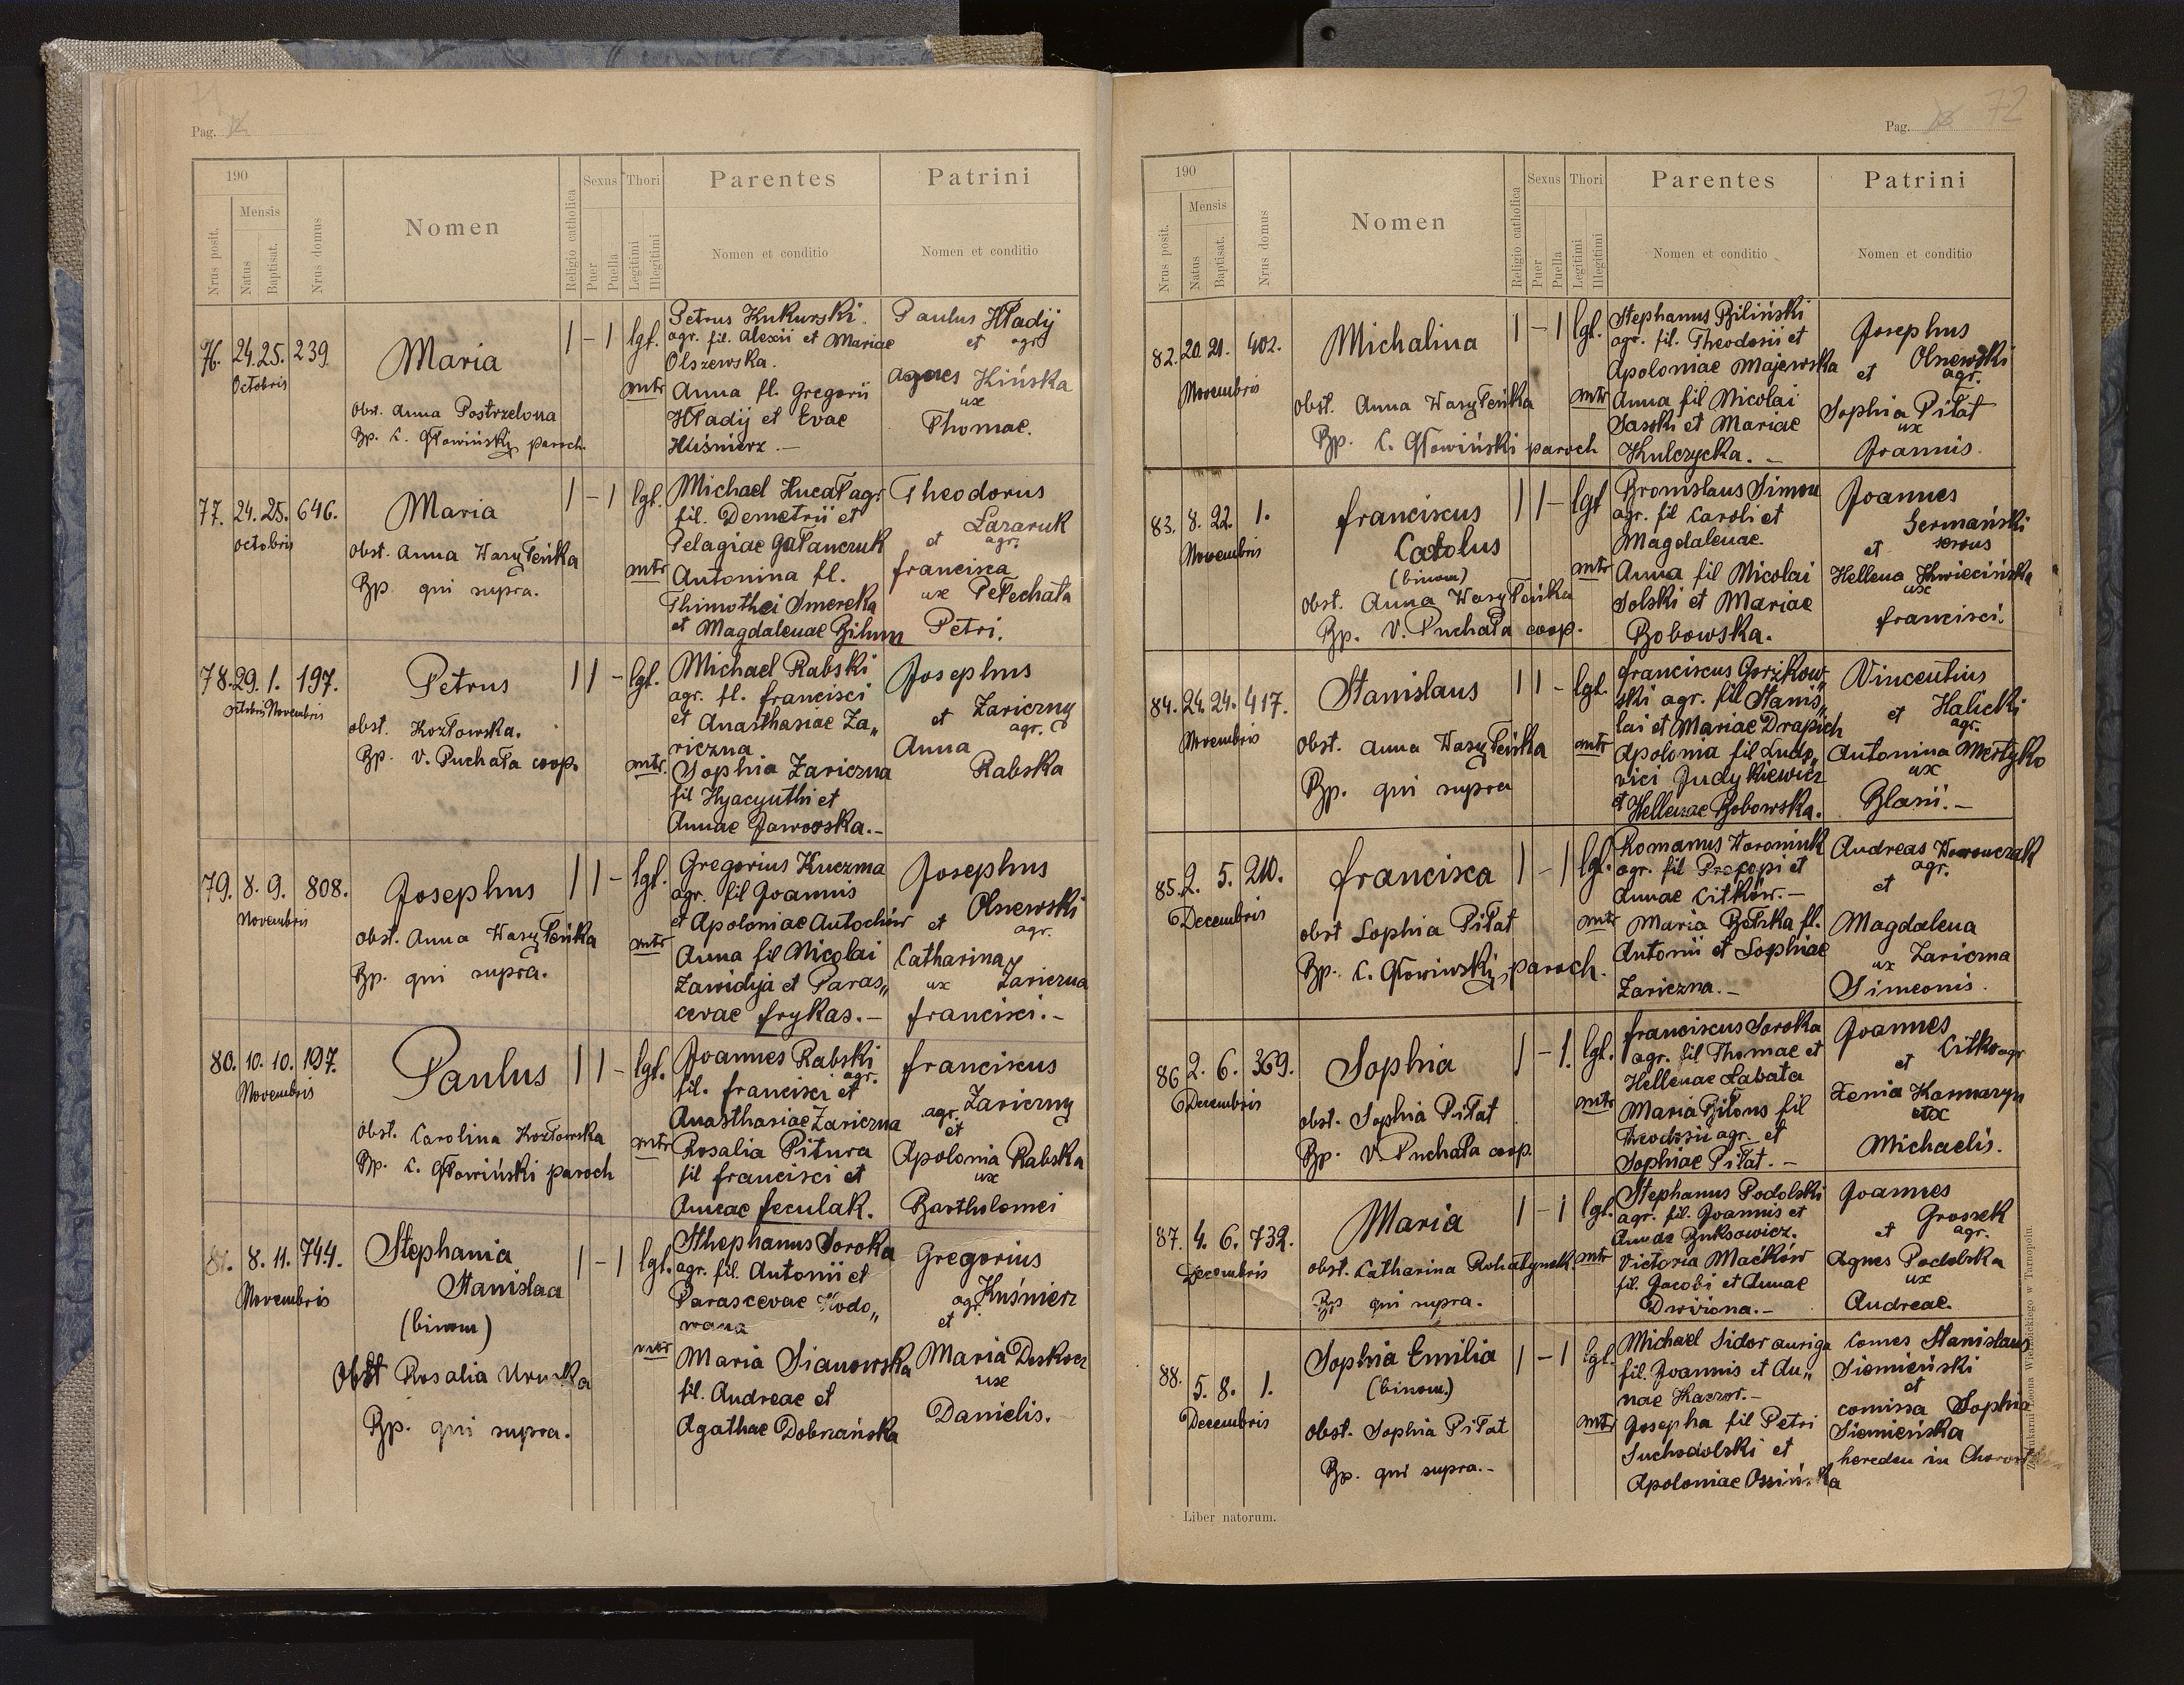 71
Pag.
190
Nrus posit.
Mensis
Natus
Baptisat.
Nrus domus
Nomen
Religio catholica
Sexus
Puer
Puella
Thori
Legitimi
Illegitimi
Parentes
Nomen et conditio
Patrini
Nomen et conditio
76. 24. 25. 239.
Octobris
Maria
obst. Anna Postrzelona
Bp. C. Głowiński paroch.
1 - 1 lgt.
Petrus Kukurski
agr. fil. Alexii et Mariae
Olszewska.
mtr Anna fl. Gregorii
Hładij et Evae
Huśnierz. -
Paulus Hładij
et agr.
Agnes Kińska
ux
Thomae.
77. 24. 25. 646.
octobris
Maria
obst. Anna Wasyłeńka
Bp. qui supra.
1 - 1 lgt.
Michael Hucał agr
fil. Demetrii et
Pelagiae Gałanczuk
mtr Antonina fl.
Thimothei Smereka
et Magdalenae Bihun
Theodorus
Lazaruk
et agr.
francisca
ux Pełechata
Petri.
78. 29. 1. 197.
octobris Novembris
Petrus
obst. Kozłowska.
Bp. V. Puchała coop.
1 1 - lgt.
Michael Rabski
agr. fl. francisci
et Anasthasiae Za„
riczna.
mtr. Sophia Zariczna
fil Hyacynthi et
Annae Jaworska. -
Josephus
Zariczny
et agr.
Anna
Rabska
79. 8. 9. 808.
Novembris
Josephus
obst. Anna Wasyłeńka
Bp. qui supra.
1 1 - lgt.
Gregorius Kuczma
agr. fil Joannis
et Apoloniae Antochów
mtr Anna fil Nicolai
Zawidyja et Paras„
cevae frykas. -
Josephus
Olszewski
et agr.
Catharina
ux Zariczna
francisci. -
80. 10. 10. 197.
Novembris
Paulus
obst. Carolina Kozłowska
Bp. C. Głowiński paroch
1 1 - lgt.
Joannes Rabski
agr.
fil. francisci et
Anasthasiae Zariczna
mtr Rosalia Pitura
fil francisci et
Annae feculak.
franciscus
Zariczny
agr.
et
Apolonia Rabska
ux
Bartholomei
81. 8. 11. 744.
Novembris
Stephania
Stanislaa
(binom)
Obst Rosalia
Bp. qui supra.
1 - 1 lgt.
Sthephanus Soroka
agr. fil. Antonii et
Parascevae Hodo„
wana
mtr Maria Sianowska
fil. Andreae et
Agathae Dobrzańska
Gregorius
Kuśnierz
agr.
et
Maria Doskocz
ux
Danielis. -
Pag. 72
190
Nrus posit.
Mensis
Natus
Baptisat.
Nrus domus
Nomen
Religio catholica
Sexus
Puer
Puella
Thori
Legitimi
Illegitimi
Parentes
Nomen et conditio
Patrini
Nomen et conditio
82. 20. 21. 402.
Novembris
Michalina
obst. Anna Wasyłeńka
Bp. C. Głowiński paroch
1 - 1 lgt.
Stephanus Biliński
agr. fil. Theodosii et
Apoloniae Majewska
mtr Anna fil Nicolai
Sasski et Mariae
Kulczycka. -
Josephus
Olszewski
et agr.
Sophia Piłat
ux
Joannis.
83. 8. 22. 1.
Novembris
franciscus
Carolus
(binom)
obst. Anna Wasyłeńka
Bp. V. Puchała coop.
1 1 - lgt
Bronislaus Simon
agr. fil Caroli et
Magdalenae.
mtr Anna fil Nicolai
Solski et Mariae
Bobowska.
Joannes
Germański
et servus
Hellena Kwiecińska
ux
francisci.
84. 24. 24. 417.
Novembris
Stanislaus
obst. Anna Wasyłeńka
Bp. qui supra
1 1 - lgt.
franciscus Gorzkow„
ski agr. fil Stanis„
lai et Mariae Drapich
mtr Apolonia fil Ludo„
vici Judykiewicz
et Hellenae Bobowska.
Vincentius
Halicki
et agr.
Antonina Mertyko
ux
Blasii. -
85. 2. 5. 210.
Decembris
francisca
obst Sophia Piłat
Bp. C. Głowinski, paroch.
1 - 1 lgt.
Romanus Woroniuk
agr. fil Procopi et
Annae Citków. -
mtr Maria Bolska fl.
Antonii et Sophiae
Zariczna. -
Andreas Woronczak
agr.
et
Magdalena
ux Zariczna
Simeonis.
86 2. 6. 369.
Decembris
Sophia
obst. Sophia Piłat
Bp. V. Puchała coop.
1 - 1. lgt.
franciscus Soroka
agr. fil Thomae et
Hellenae Labata
mtr Maria Bilous fil
Theodosii agr. et
Sophiae Piłat. -
Joannes
et Citko agr
Xenia Kasnaryn
ux
Michaelis.
87. 4. 6. 732.
Decembris
Maria
obst. Catharina Rohatynsk.
Bp qui supra.
1 - 1 lgt.
Stephanus Podolski
agr. fil. Joannis et
Annae Buksowicz.
mtr Victoria Maćków
fil. Jacobi et Annae
Drwiona. -
Joannes
Grossek
et agr.
Agnes Podolska
ux
Andreae.
88. 5. 8. 1.
Decembris
Sophia Emilia
(binom.)
obst. Sophia Piłat
Bp. qui supra. -
1 - 1 lgt.
Michael Sidor auriga
fil. Joannis et An„
nae Kaczor. -
mtr Josepha fil Petri
Suchodolski et
Apoloniae Ossińska
Comes Stanislaus
Siemieński
et
comissa Sophia
Siemieńska
heredes in Chorost
Liber natorum.